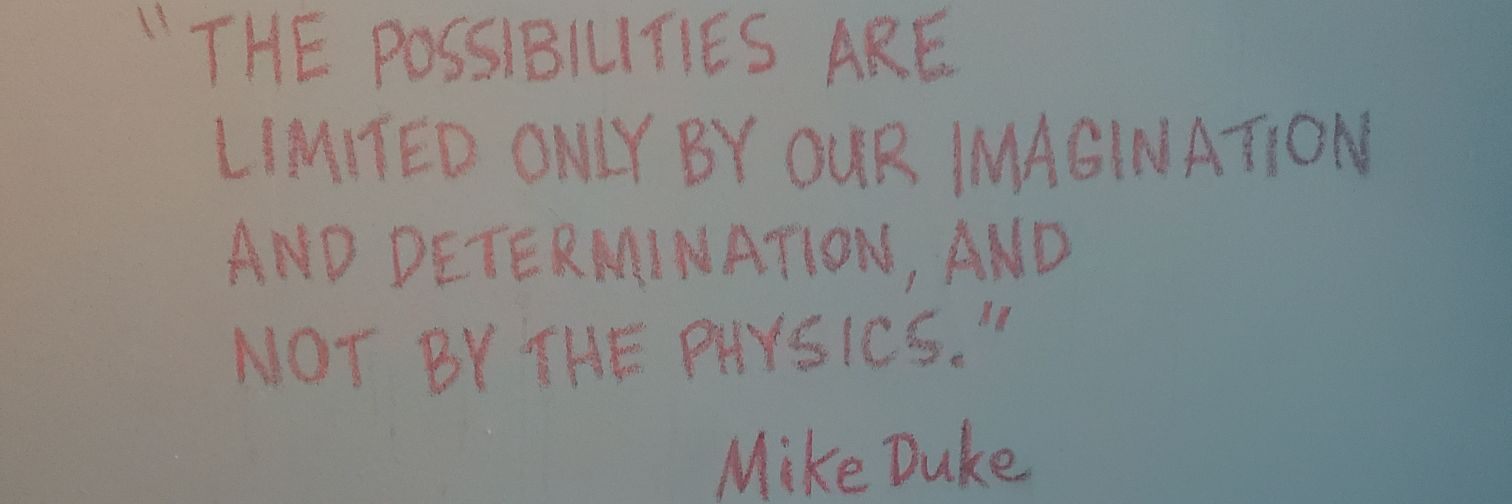 "THE POSSIBILITIES ARE
LIMITED ONLY BY OUR IMAGINATION
AND DETERMINATION, AND
NOT BY THE PHYSICS."
Mike Duke